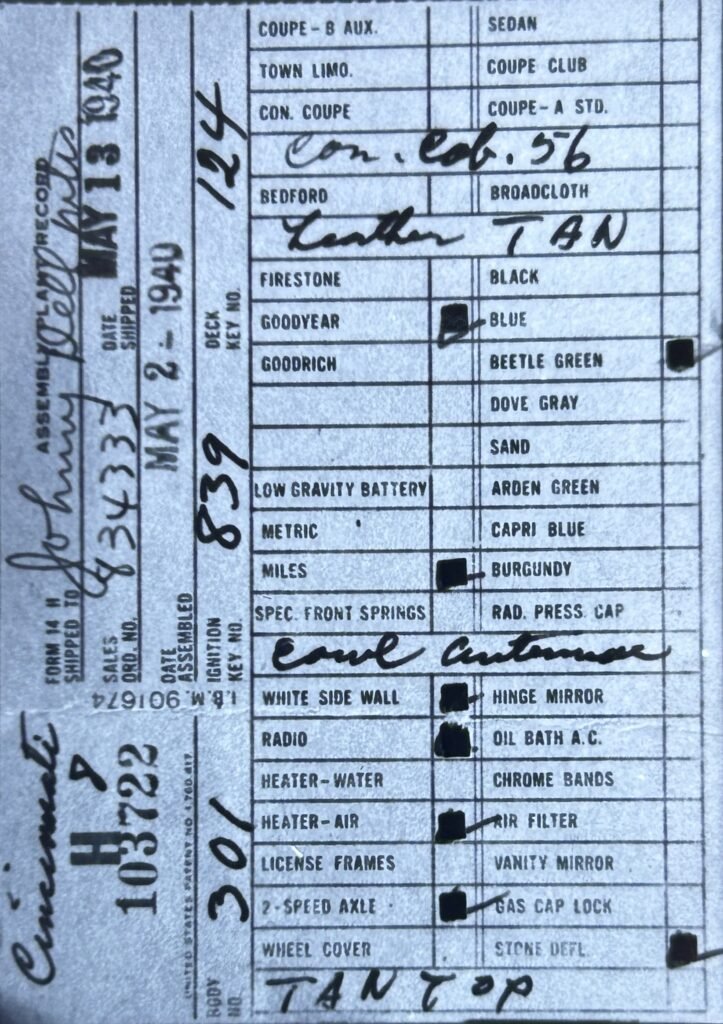 Cincinnati
H 8
103722
FORM 14 H ASSEMBLY PLANT RECORD
SHIPPED TO Johnny
SALES ORD. NO. 834333 DATE SHIPPED MAY 13 1940
DATE ASSEMBLED MAY 2 - 1940
I.B.M. 901674
UNITED STATES PATENT NO. 1,780,417
BODY NO. 301 IGNITION KEY NO. 839 DECK KEY NO. 124
COUPE-B AUX. SEDAN
TOWN LIMO. COUPE CLUB
CON. COUPE COUPE-A STD.
Con. Cab. 56
BEDFORD BROADCLOTH
Leather TAN
FIRESTONE BLACK
GOODYEAR BLUE
GOODRICH BEETLE GREEN
DOVE GRAY
SAND
LOW GRAVITY BATTERY ARDEN GREEN
METRIC CAPRI BLUE
MILES BURGUNDY
SPEC. FRONT SPRINGS RAD. PRESS. CAP
Cowl antennae
WHITE SIDE WALL HINGE MIRROR
RADIO OIL BATH A.C.
HEATER-WATER CHROME BANDS
HEATER-AIR AIR FILTER
LICENSE FRAMES VANITY MIRROR
2-SPEED AXLE GAS CAP LOCK
WHEEL COVER STONE DEFL.
TAN TOP